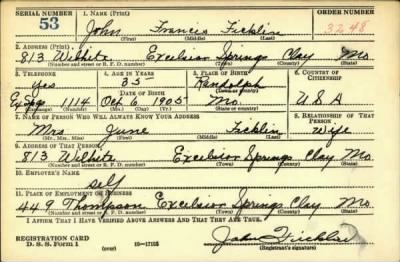 SERIAL NUMBER 1. NAME (Print) ORDER NUMBER
53 John Francis Ficklin 3248
(First) (Middle) (Last)
2. ADDRESS (Print)
813 Wilhite Excelsior Springs Clay Mo
(Number and street or R. F. D. number) (Town) (County) (State)
3. TELEPHONE 4. AGE IN YEARS 5. PLACE OF BIRTH 6. COUNTRY OF CITIZENSHIP
Yes 35 Randolph
DATE OF BIRTH (Town or county)
Ex Spgs 1114 Oct 6 1905 Mo. U S A
(Exchange) (Number) (Mo.) (Day) (Yr.) (State or country)
7. NAME OF PERSON WHO WILL ALWAYS KNOW YOUR ADDRESS 8. RELATIONSHIP OF THAT PERSON
Mrs June Ficklin Wife
(Mr., Mrs., Miss) (First) (Middle) (Last)
9. ADDRESS OF THAT PERSON
813 Wilhite Excelsior Springs Clay Mo.
(Number and street or R. F. D. number) (Town) (County) (State)
10. EMPLOYER'S NAME
self
11. PLACE OF EMPLOYMENT OR BUSINESS
449 Thompson Excelsior Springs Clay Mo
(Number and street or R. F. D. number) (Town) (County) (State)
I AFFIRM THAT I HAVE VERIFIED ABOVE ANSWERS AND THAT THEY ARE TRUE.
REGISTRATION CARD
D. S. S. Form 1 (over) 16—17105 John Ficklin
(Registrant's signature)